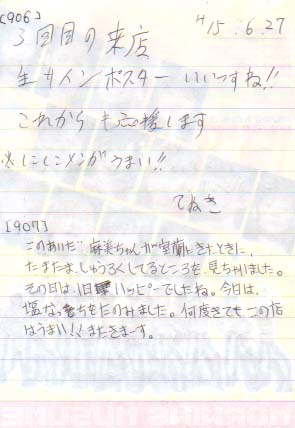 [906]
H15.6.27
3回目の来店
生サインポスターいいっすね!!
これからも応援します
※ミニメンがうまい!!
てぬき
[907]
このあいだ麻美ちゃんが室蘭にきたときに、
たまたましゅうろくしてるところを見ちゃいました。
その日は1日ハッピーでしたね。今日は、
塩なっちをたのみました。何度きてもこの店
はうまい!!またきまーす。